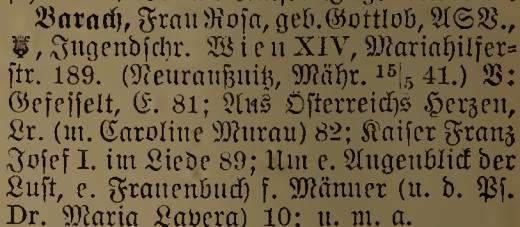 Barach, Frau Rosa, geb. Gottlob, ASV.,
Jugendschr. Wien XIV, Mariahilfer-
str. 189. (Neuraußnitz, Mähr. 15|5 41.) V:
Gefesselt, E. 81; Aus Österreichs Herzen,
Lr. (m. Caroline Murau) 82; Kaiser Franz
Josef I. im Liede 89; Um e. Augenblick der
Lust, e. Frauenbuch f. Männer (u. d. Ps.
Dr. Maria Lavera) 10; u. m. a.